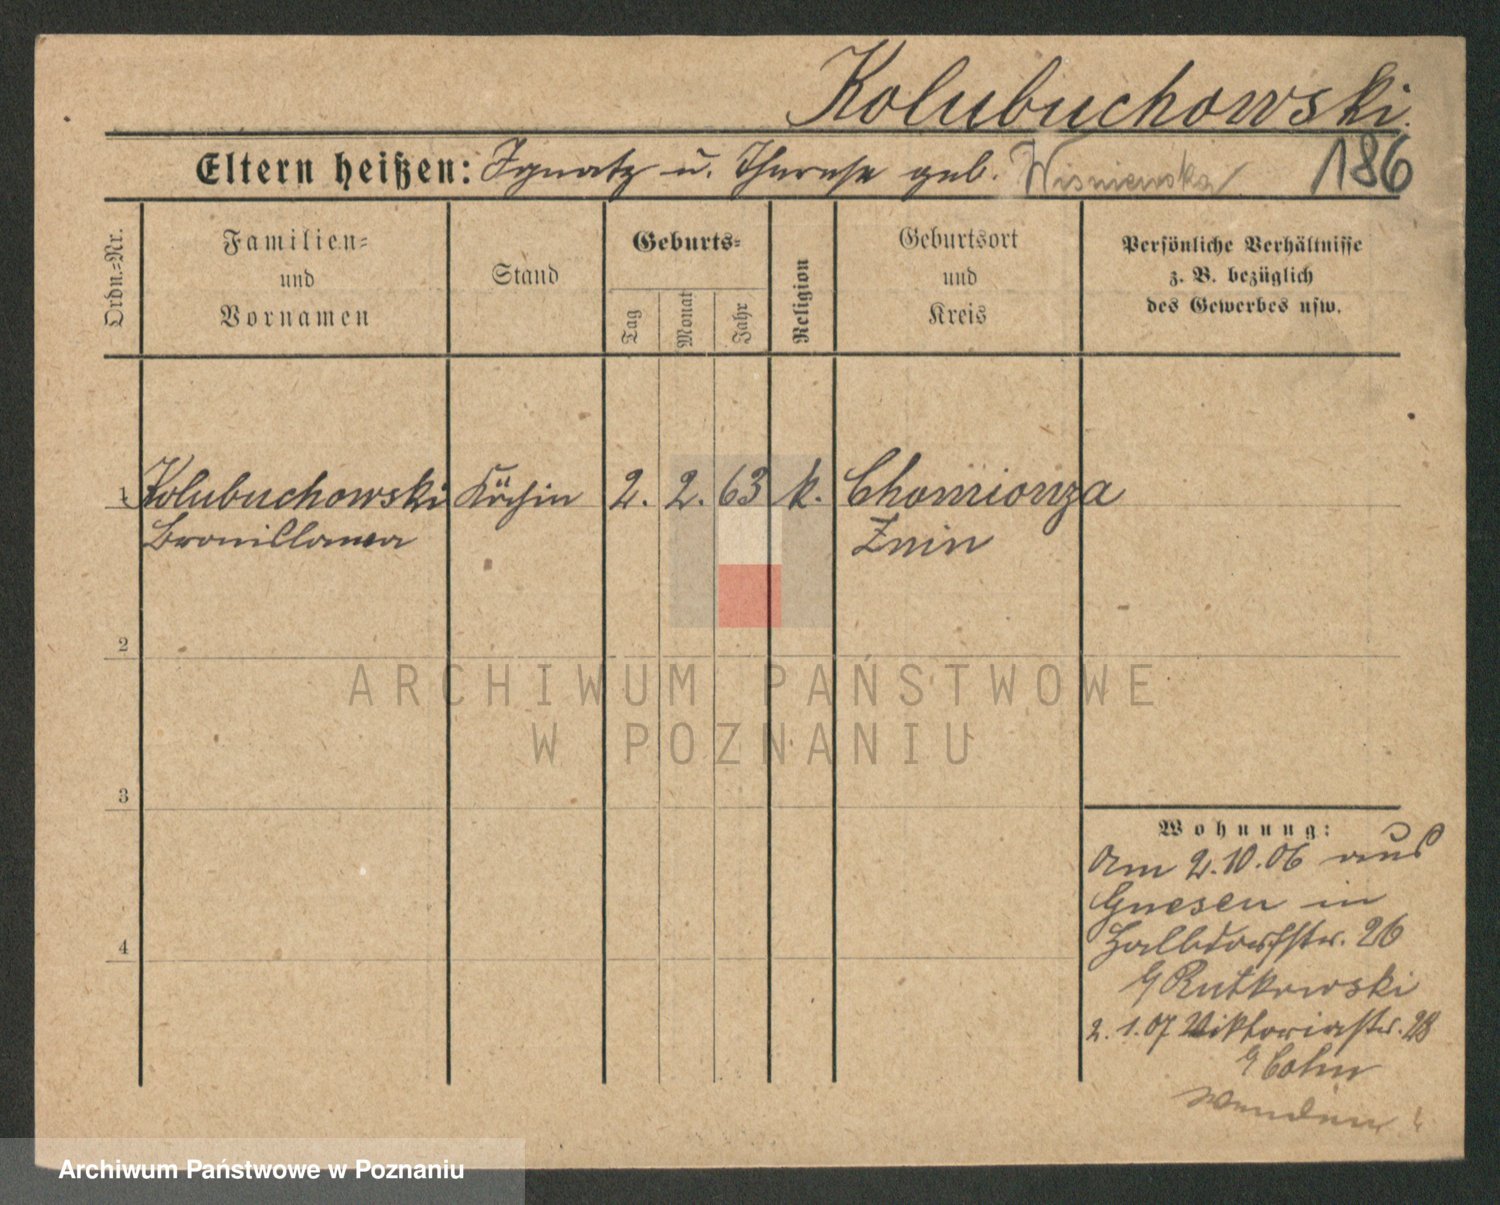 Kolubuchowski.
Eltern heißen: Ignatz u. Therese geb. Wisniewska
186
Ordn.-Nr.
Familien-
und
Vornamen
Stand
Geburts-
Tag
Monat
Jahr
Religion
Geburtsort
und
Kreis
Persönliche Verhältnisse
z. B. bezüglich
des Gewerbes usw.
1 Kolubuchowski Köchin 2. 2. 63 k. Chomionza
Bronislawa Znin
2
ARCHIWUM PAŃSTWOWE
W POZNANIU
3
Wohnung:
Am 2.10.06 aus
Gnesen in
4
Halbdorfstr. 26
Rutkowski
2. 1. 07 Viktoriastr. 28
Cohn
wenden!
Archiwum Państwowe w Poznaniu